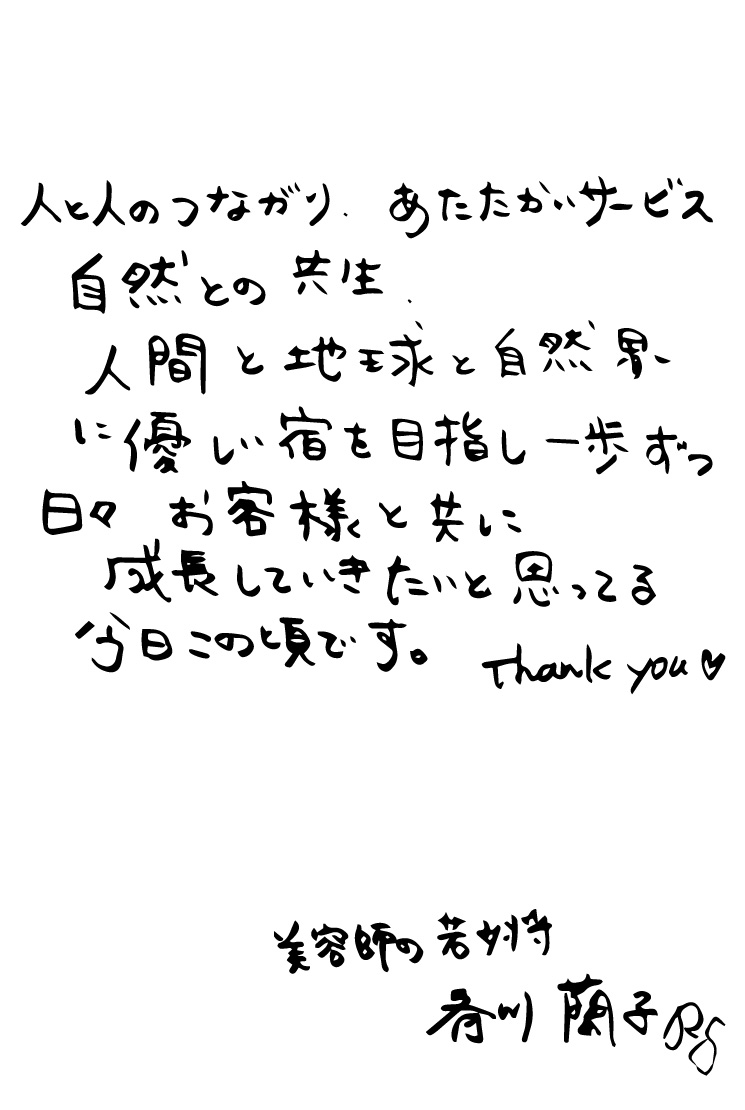 人と人のつながり、あたたかいサービス
自然との共生、
人間と地球と自然界
に優しい宿を目指し一歩ずつ
日々 お客様と共に
成長していきたいと思ってる
今日この頃です。
Thank you♡
美容師の若女将
香川 蘭子